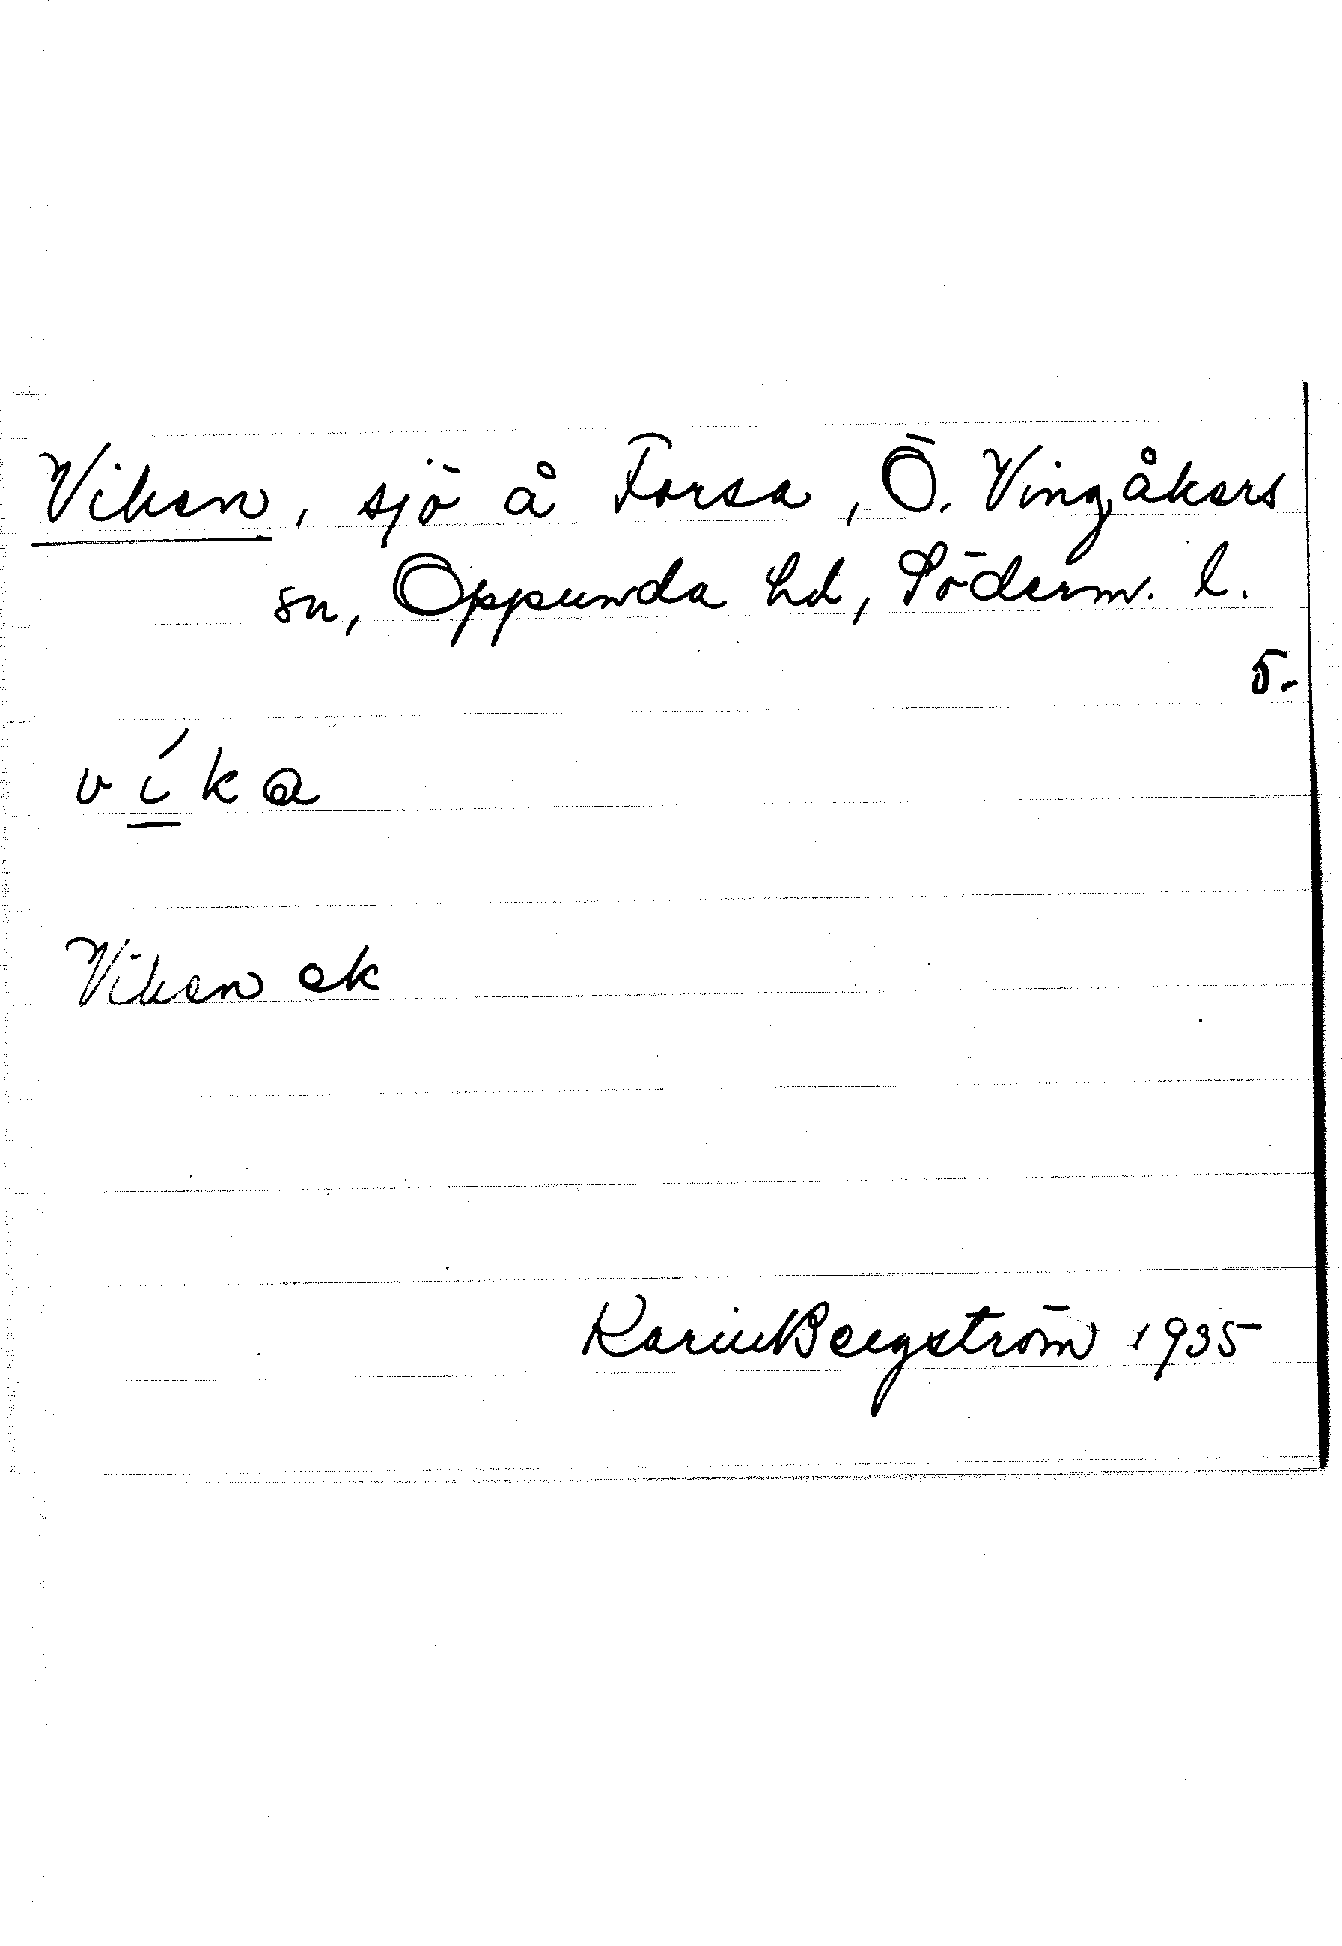 Viken, sjö å Forsa, Ö. Vingåkers
sn, Oppunda hd, Söderm. l.
5.
víka
Viken ek
Karin Bergström 1935